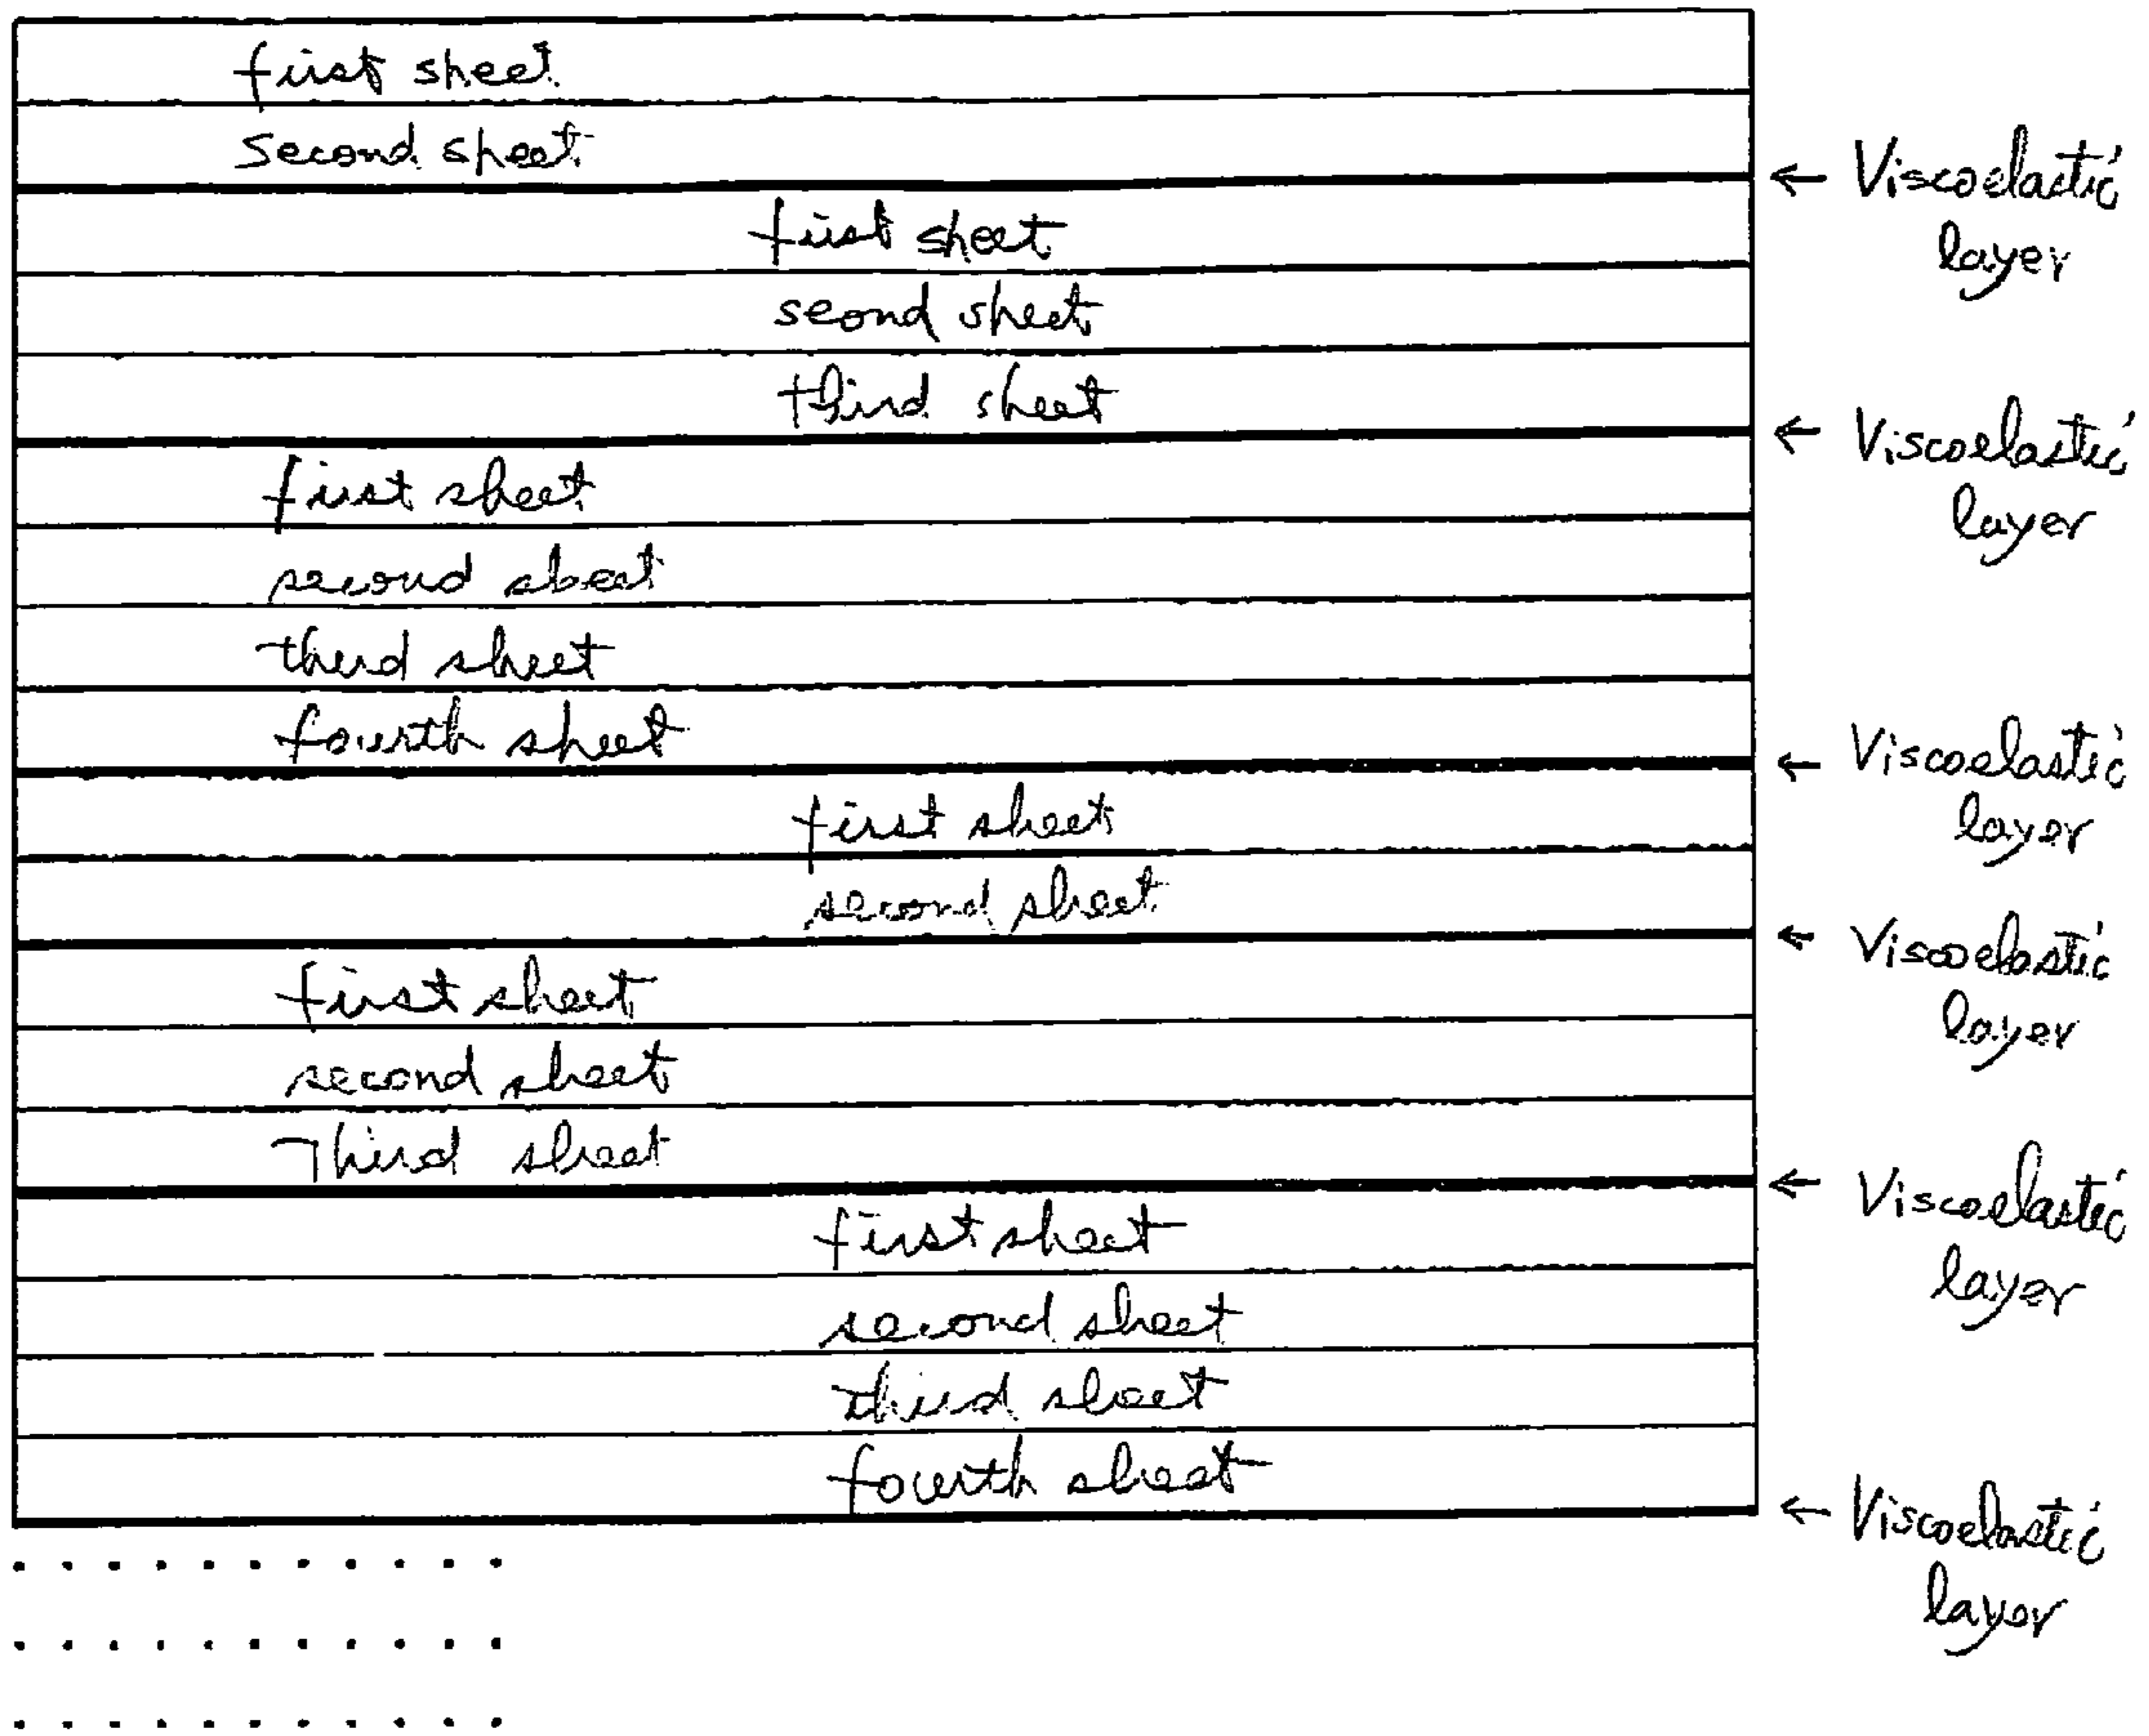 first sheet
second sheet
Viscoelastic
layer
first sheet
seond sheet
third sheet
Viscoelastic
layer
first sheet
second sheet
third sheet
fourth sheet
Viscoelastic
layer
first sheet
second sheet
Viscoelastic
layer
first sheet
second sheet
Third sheet
Viscoelastic
layer
first sheet
second sheet
third sheet
fourth sheet
Viscoelastic
layer